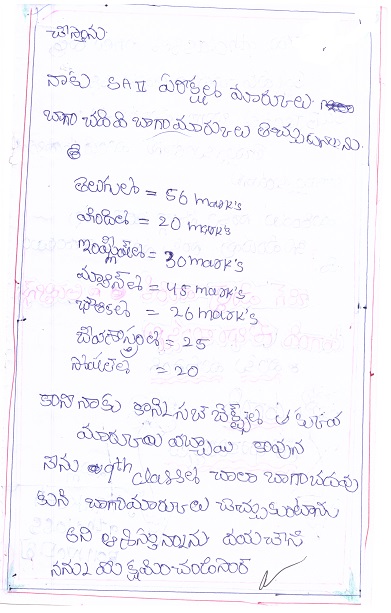 చేస్తాను.
నాకు SA II పరీక్షల్లో మార్కులు
బాగా చదివి బాగా మార్కులు తెచ్చుకున్నాను.
తెలుగులో = 56 mark's
హిందీలో = 20 mark's
ఇంగ్లీష్‌లో = 30 mark's
మ్యాథ్స్‌లో = 45 mark's
భౌతికలో = 26 mark's
జీవశాస్త్రంలో = 25
సోషల్‌లో = 20
కాని నాకు కొన్ని సబ్జెక్ట్స్‌లో తక్కువ
మార్కులు వచ్చాయి కావున
నేను 9th classలో చాలా బాగా చదువు
కుని బాగా మార్కులు తెచ్చుకుంటాను
అని ఆశిస్తున్నాను దయచేసి
నన్ను క్షమించండి సార్